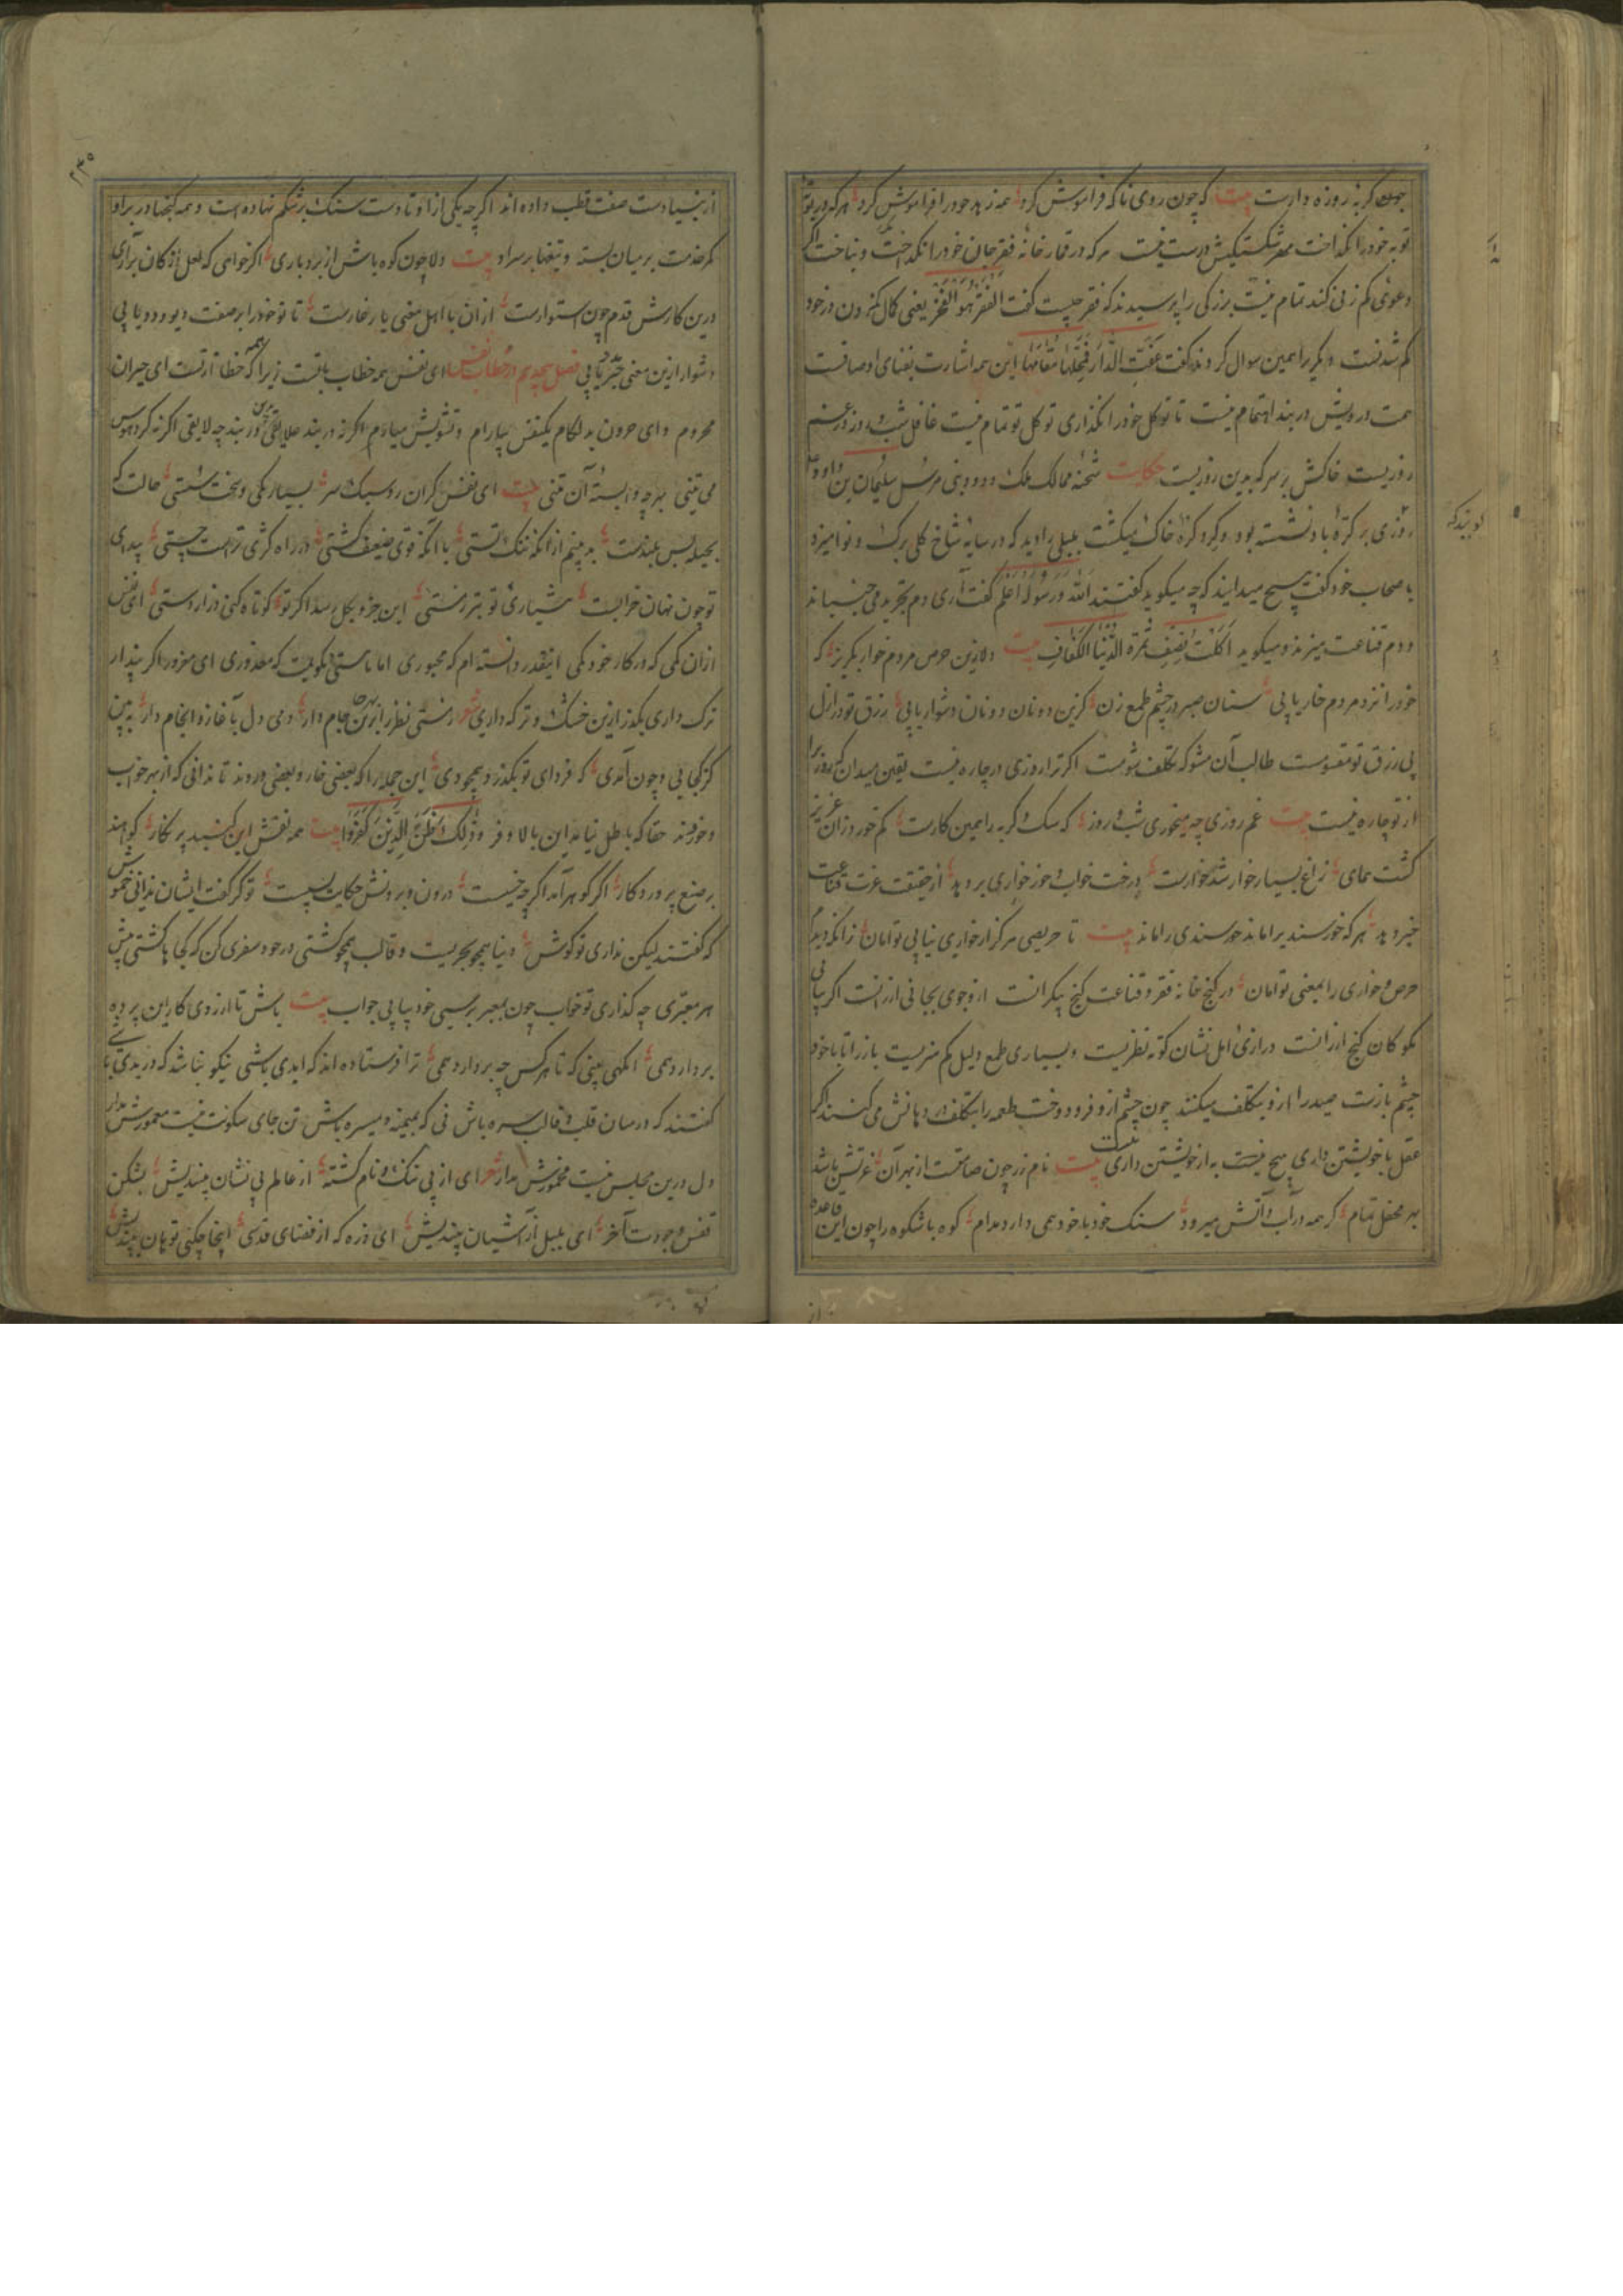 چون گربه روزه دارست بیت که چون روی نا که فراموش کرد همه زهد خود را فراموش کرد هر که در بوته
توبه خود را نگداخت مهر شکستگیش درست نیست هر که در قمارخانه فقر جان خود را نگداخت و نباخت اگر
دعوی کم زنی کند تمام نیست بزرگی را پرسیدند که فقر چیست گفت الفقر هو الفخر یعنی کمال من درون در خود
کم شدنست دیگر را همین سوال کردند گفت عفت الدار فمحلها مقامها این همه اشارت بفنای اوصافست
همت درویش در بند اهتمام نیست تا توکل خود را نگذاری توکل تو تمام نیست غافل شب و روز در غم
روزیست خاکش بر سر که بدین روزیست حکایت شحنه ممالک ملک و دود و نبی مرسل سلیمان بن داود
روزی بر کره باد نشسته بود و گرد کره خاک میگشت بلبلی را دید که در سایه شاخ گلی برگ و نوا میزد
با صحاب خود گفت هیچ میدانید که چه میگوید گفتند الله و رسوله اعلم گفت آری دم تجرید می جنباند
و دم قناعت میزند و میگوید اکلت نصف ثمرة الدنیا الکفاف بیت دلا زین حرص مردم خوار بگریز که
خود را نزد مردم خار یابی سنان صبر در چشم طمع زن کزین دونان دو نان دشوار یابی رزق تو در ازل
پی رزق تو مقسومست طالب آن مشو که تکلف شومست اگر ترا روزی در چاره نیست یقین میدان که روزی را
از تو چاره نیست بیت غم روزی چه میخوری شب و روز که سک و گربه را همین کارست کم خور دزان عزیز
گشت همای زاغ بسیار خوار شد خوارست درخت خواب و خور خواری بر دهد از حقیقت عزت قناعت
خبر دهد هر که خورسند را ماند خورسندی را ماند بیت تا حریصی هرگز از خواری نیابی تو امان زانکه دیدم
حرص و خواری را بمعنی توامان در کنج خانه فقر و قناعت گنج بیکرانست از وجوی بجانی ارزانست اگر بیابی
مکو کان گنج ارزانست درازی امل نشان کوته نظریست و بسیاری طمع دلیل کم هنریست باز را تا با خود
چشم بازست صید را از و بتکلف میکنند چون چشم از و فرو دوخت طعمه را بتکلف در دهانش می کنند اگر
عقل با خویشتن داری هیچ نیست به از خویشتن داری بیت نام زر چون صامتست از بهر آن عزتش باشد
بهر محفل تمام گر همه در آب و آتش میرود سنگ خود با خود همی دارد مدام کوه با شکوه را چون این قاعده
گویند که
۲۳۵
از بنیادست صفت قطب داده اند اگر چه یکی از اوتادست سنک بر شکم نهاده است و همه گنجها در بر او
کمر خدمت بر میان بسته و تیغها بر سر او بیت دلا چون کوه باش از بردباری اگر خواهی که لعل از کان برآری
درین کارش قدم چون استوارست از ان با اهل معنی یار غارست تا تو خود را بر صفت دیو و دد یابی
دشوار ازین معنی خبر یابی فصل هجدهم در خطاب نفس ای نفس همه خطاب با تست زیرا که همه خطا از تست ای حیران
محروم و ای حرون بد لگام یکنفس بیارام و تشویش میارام اگر نه در بند علایقی درین بند چه لایقی اگر نه گرد هوس
می تنی بهر چه وابسته آن تنی بیت ای نفس گران رو سبک سر بسیار مکی و سخت سستی حالت که
بحیله بس بلندست به بینم از انکه ننگ التستی با آنکه قوی ضعیف گشتی در راه کژی تر هست چستی پیدای
تو چون نهان خرابست هشیاری تو بتر ز مستی این جزو بکل رسد اگر تو کوتاه کنی دراز دستی ای نفس
از ان کمی که در کار خود کمی اینقدر دانسته ام که مجبوری اما با ستی نگویمت که معذوری ای مزور اگر پندار
ترک داری بگذر ازین خشک و تر که داری شعر از مستی نظر را برین جام دار دمی دل بآغاز و انجام دار ببین
کز کجایی و چون آمدی که فردای تو بگذرد همچو دی این جمله را که بعضی خار و بعضی وردند تا ندانی که از بهر خواب
و خور نبند حقا که باطل نیامد این بالا و فر و ذلک ظن الذین کفروا بیت همه نقش این گنبد پر نگار گواهند
بر صنع پروردگار اگر گوهر آمد اگر چه خسیست درون و برونش حکایت بسیست تو گر گفت ایشان ندانی خموش
که گفتند لیکن نداری تو گوش دنیا همچو بحریست و قالب همچو کشتی در خود سفری کن که کجا ها گشتی پیش
هر معبری چه گذاری تو خواب چون بمعبر برسی خود بیابی جواب بیت باش تا از روی کار این پرده
بردارد همی انگهی بینی که تا هر کس چه بر دارد همی ترا فرستاده اند که ابدی باشی نیکو نباشد که در بدی باشی
گفتند که در میان قلب و قالب سره باش نی که بمیمنه و میسره باش تن جای سکونت نیست معمورش مدار
دل درین مجلس نیست مخمورش مدار شعر ای از پی ننگ و نام گشته از عالم بی نشان بیندیش بشکن
قفس وجودت آخر ای بلبل از آشیان بیندیش ای ذره که از فضای قدسی اینجا چکنی تو هان بیندیش